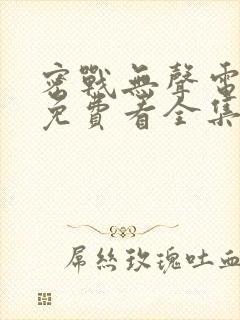 密戰無聲電
免費看全集
屌絲玫瑰吐血